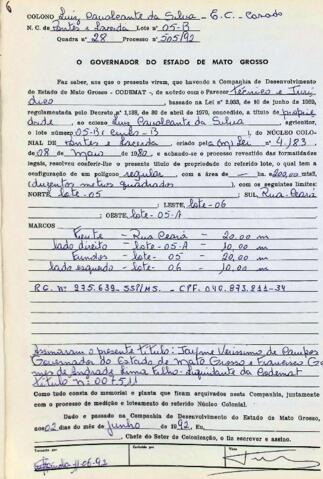 6
COLONO Luiz Cavalcante da Silva - E.C. - Casado
N. C. de Pontes e Lacerda Lote n° 05-B
Quadra n° 28 Processo n° 505/92
O GOVERNADOR DO ESTADO DE MATO GROSSO
Faz saber, aos que o presente virem, que havendo a Companhia de Desenvolvimento
do Estado de Mato Grosso - CODEMAT -, de acordo com o Parecer Técnico e Jurí
dico, bassado na Lei n° de 10 de junho de
regulamentada pelo Decreto n° de 30 de abril de 1979, concedido, a título de proprie
dade, ao colono Luiz Cavalcante da Silva, agricultor,
o lote número 05-B, do NÚCLEO COLO-
NIAL DE Pontes e Lacerda, criado pela Lei n° 4.183
de 08 de Maio de e achando-se o processo revestido das formalidades
legais, resolveu conferir-lhe o título de propriedade do referido lote, o qual tem a
configuração de um polígono regular com a área de — ha 200,00 mts2,
(duzentos metros quadrados), com os seguintes limites:
NORTE, lote-05 SUL, Rua-Ceará
LESTE, lote-06
OESTE, lote-05-A
MARCOS
Frente - Rua Ceará - 20,00 m
lado direito - lote-05-A - 10,00 m
Fundos - lote-05 - 20,00 m
lado esquerdo - lote-06 - 10,00 m
R.G. N° 275.639-SSP/MS. - CPF.
Assinaram o presente título: Jayme Verissimo de Campos
Governador do Estado de Mato Grosso e Francisco Go
mes de Andrade Lima Filho - Liquidante da Codemat
título N°: 007511
Como tudo consta do memorial e planta que ficam arquivados nesta Companhia, juntamente
com o processo de medição e loteamento do referido Núcleo Colonial.
Dado e passado na Companhia de Desenvolvimento do Estado de Mato Grosso,
aos 02 dias do mês de junho de 1992. Eu,
Chefe do Setor de Colonização, o fiz escrever e assino.
Visto